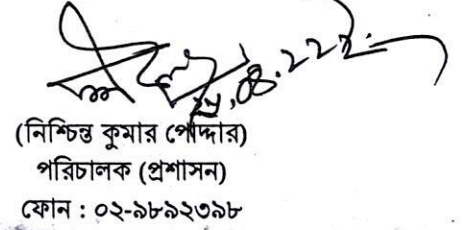 (নিশ্চিন্ত কুমার পোদ্দার)
পরিচালক (প্রশাসন)
ফোন : ০২-৯৮৯২৩৯৮